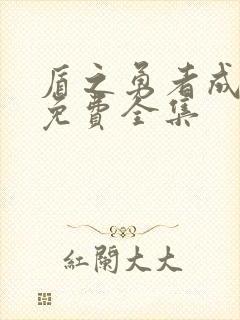 盾之勇者成
免费全集
紅闌大大